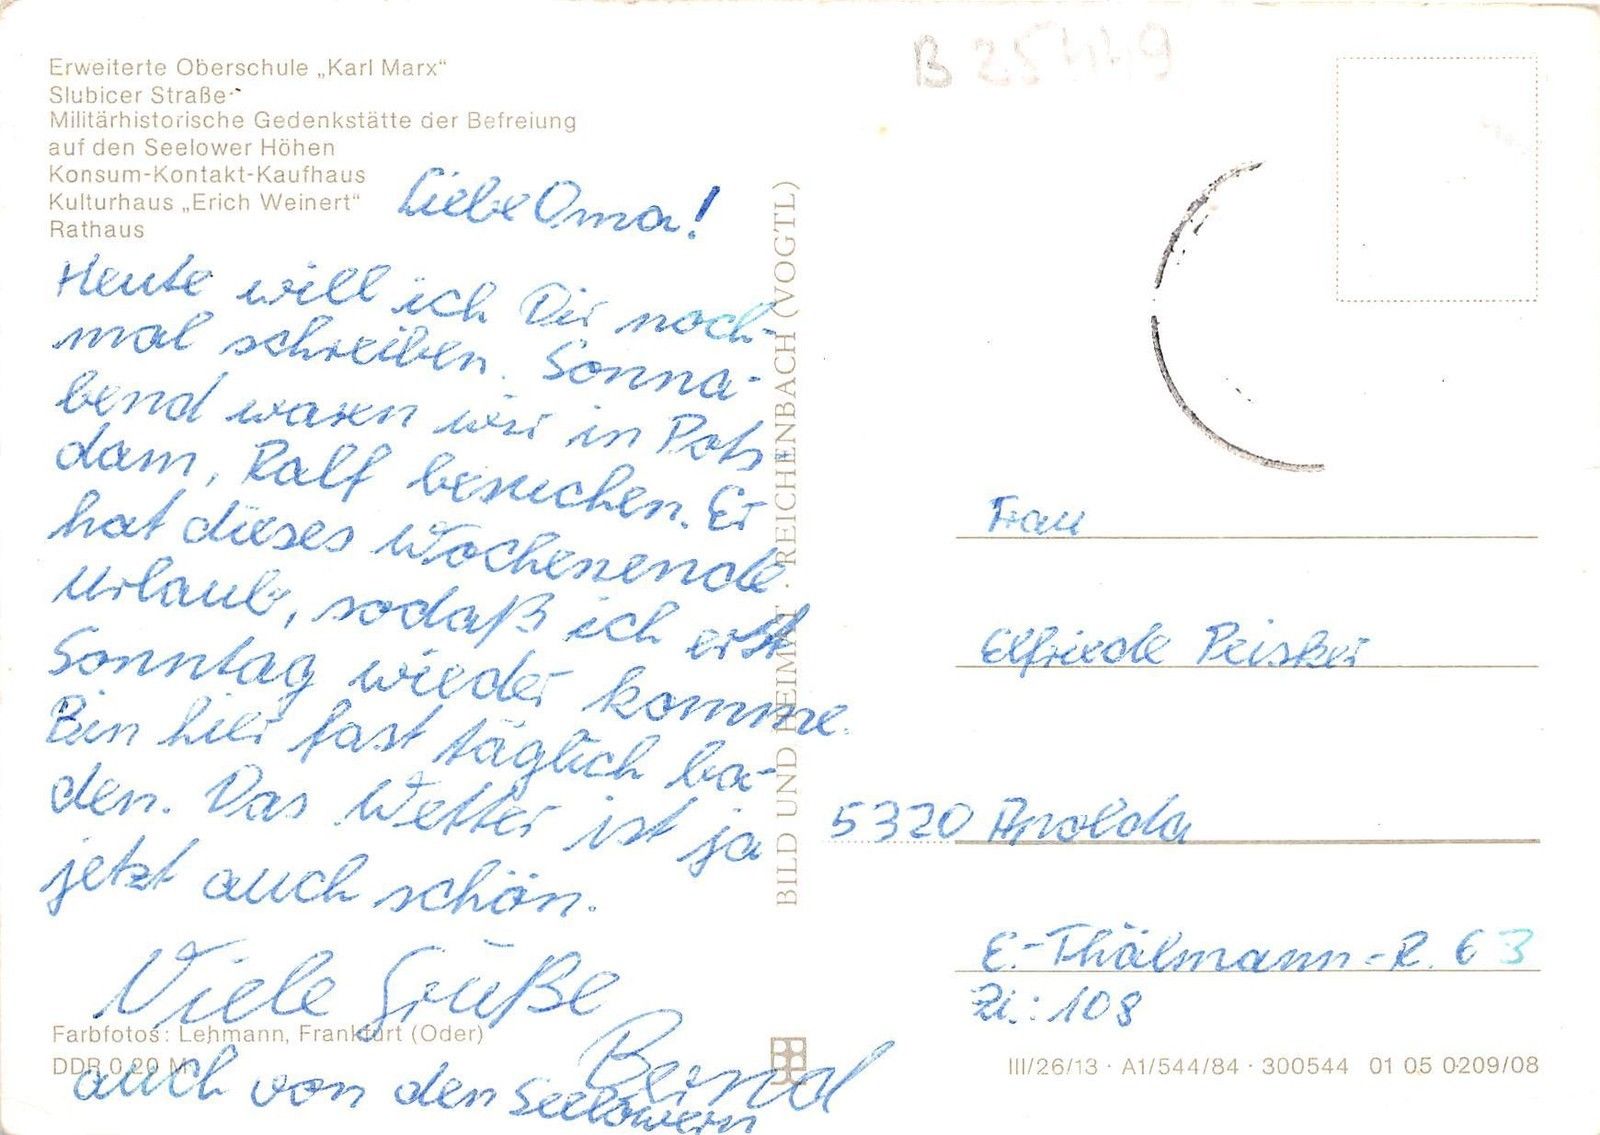 B 25449
Erweiterte Oberschule „Karl Marx“
Slubicer Straße
Militärhistorische Gedenkstätte der Befreiung
auf den Seelower Höhen
Konsum-Kontakt-Kaufhaus
Kulturhaus „Erich Weinert“
Rathaus
Liebe Oma!
Heute will ich Dir noch-
mal schreiben. Sonna-
bend waren wir in Pots-
dam, Ralf besuchen. Er
hat dieses Wochenende
Urlaub, sodaß ich erst
Sonntag wieder komme.
Bin hier fast täglich ba-
den. Das Wetter ist ja
jetzt auch schön.
Viele Grüße
Bernd
auch von den Seelowern
Farbfotos: Lehmann, Frankfurt (Oder)
DDR 0,20 M
BILD UND HEIMAT · REICHENBACH (VOGTL)
Frau
Elfriede Peisker
5320 Apolda
E.-Thälmann-R. 63
Zi.: 108
III/26/13 · A1/544/84 · 300544 01 05 0209/08